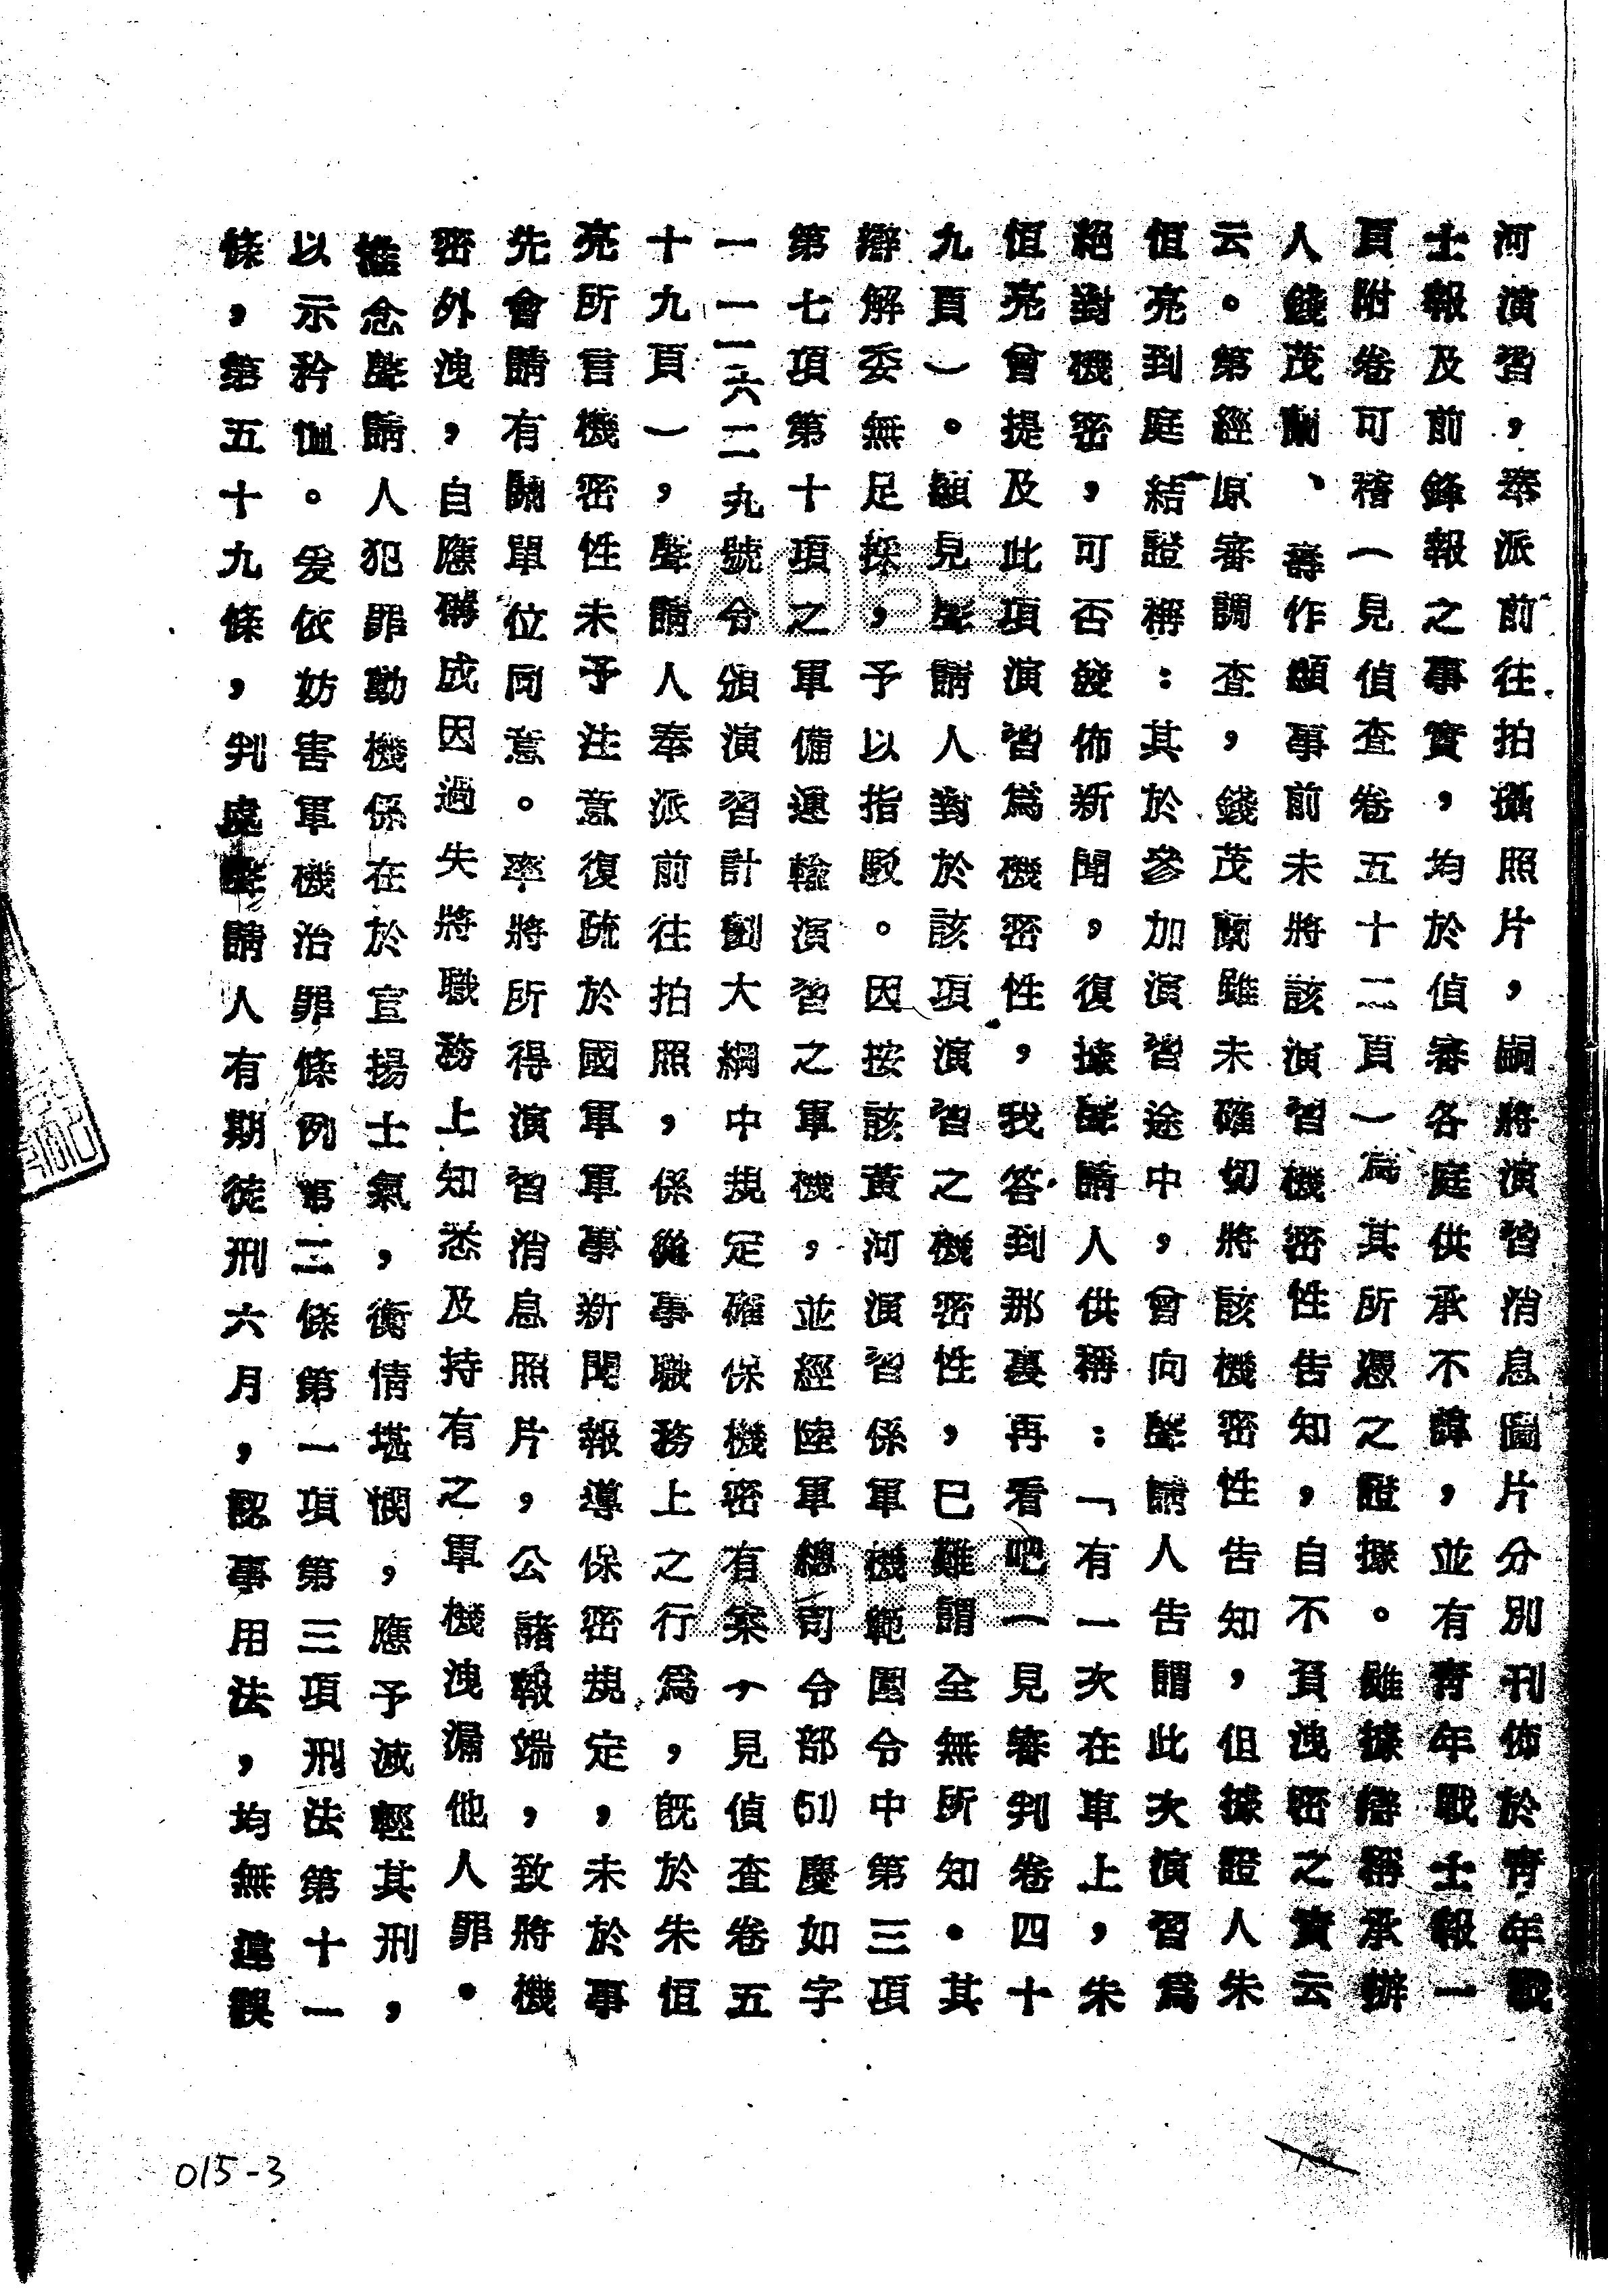 河演習，奉派前往拍攝照片，嗣將演習消息圖片分別刊佈於青年戰
士報及前鋒報之事實，均於偵審各庭供承不諱，並有青年戰士報一
頁附卷可稽（見偵查卷五十二頁）為其所憑之證據。雖據辯稱承辦
人錢茂蘭、壽作頤事前未將該演習機密性告知，自不負洩密之責云
云。第經原審調查，錢茂蘭雖未確切將該機密性告知，但據證人朱
恒亮到庭結證稱：其於參加演習途中，曾向聲請人告謂此次演習為
絕對機密，可否發佈新聞，復據聲請人供稱：「有一次在車上，朱
恒亮會提及此項演習為機密性，我答到那裏再看吧（見審判卷四十
九頁）。顯見聲請人對於該項演習之機密性，已難謂全無所知．其
辯解委無足採，予以指駁。因按該黃河演習係軍機範圍令中第三項
第七項第十項之軍備運輸演習之軍機，並經陸軍總司令部(51)慶如字
一一一六二九號令頒演習計劃大綱中規定確保機密有案（見偵查卷五
十九頁），聲請人奉派前往拍照，係從事職務上之行為，既於朱恒
亮所言機密性未予注意復疏於國軍軍事新聞報導保密規定，未於事
先會請有關單位同意。率將所得演習消息照片，公諸報端，致將機
密外洩，自應構成因過失將職務上知悉及持有之軍機洩漏他人罪．
念聲請人犯罪動機係在於宣揚士氣，衡情堪憫，應予減輕其刑，
以示矜恤。爰依妨害軍機治罪條例第二條第一項第三項刑法第十一
條，第五十九條，判處聲請人有期徒刑六月，認事用法，均無違誤
015-3